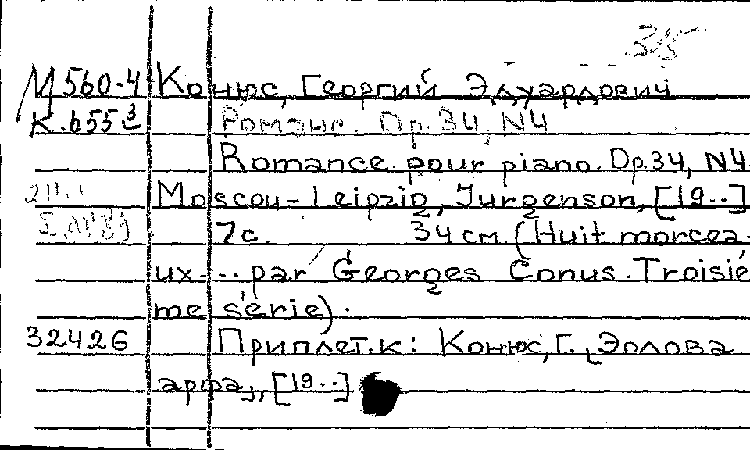 35
М560-4 Конюс, Георгий Эдуардович
К.655³ Романс. Op.34, N4
Romance pour piano. Op.34, N4
Moscou-Leipzig, Jurgenson, [19..]
7с. 34 см. (Huit morcea-
ux... par Georges Conus. Troisiè
me série).
32426 Приплет.к: Конюс, Г. Эолова
арфа, [19..]